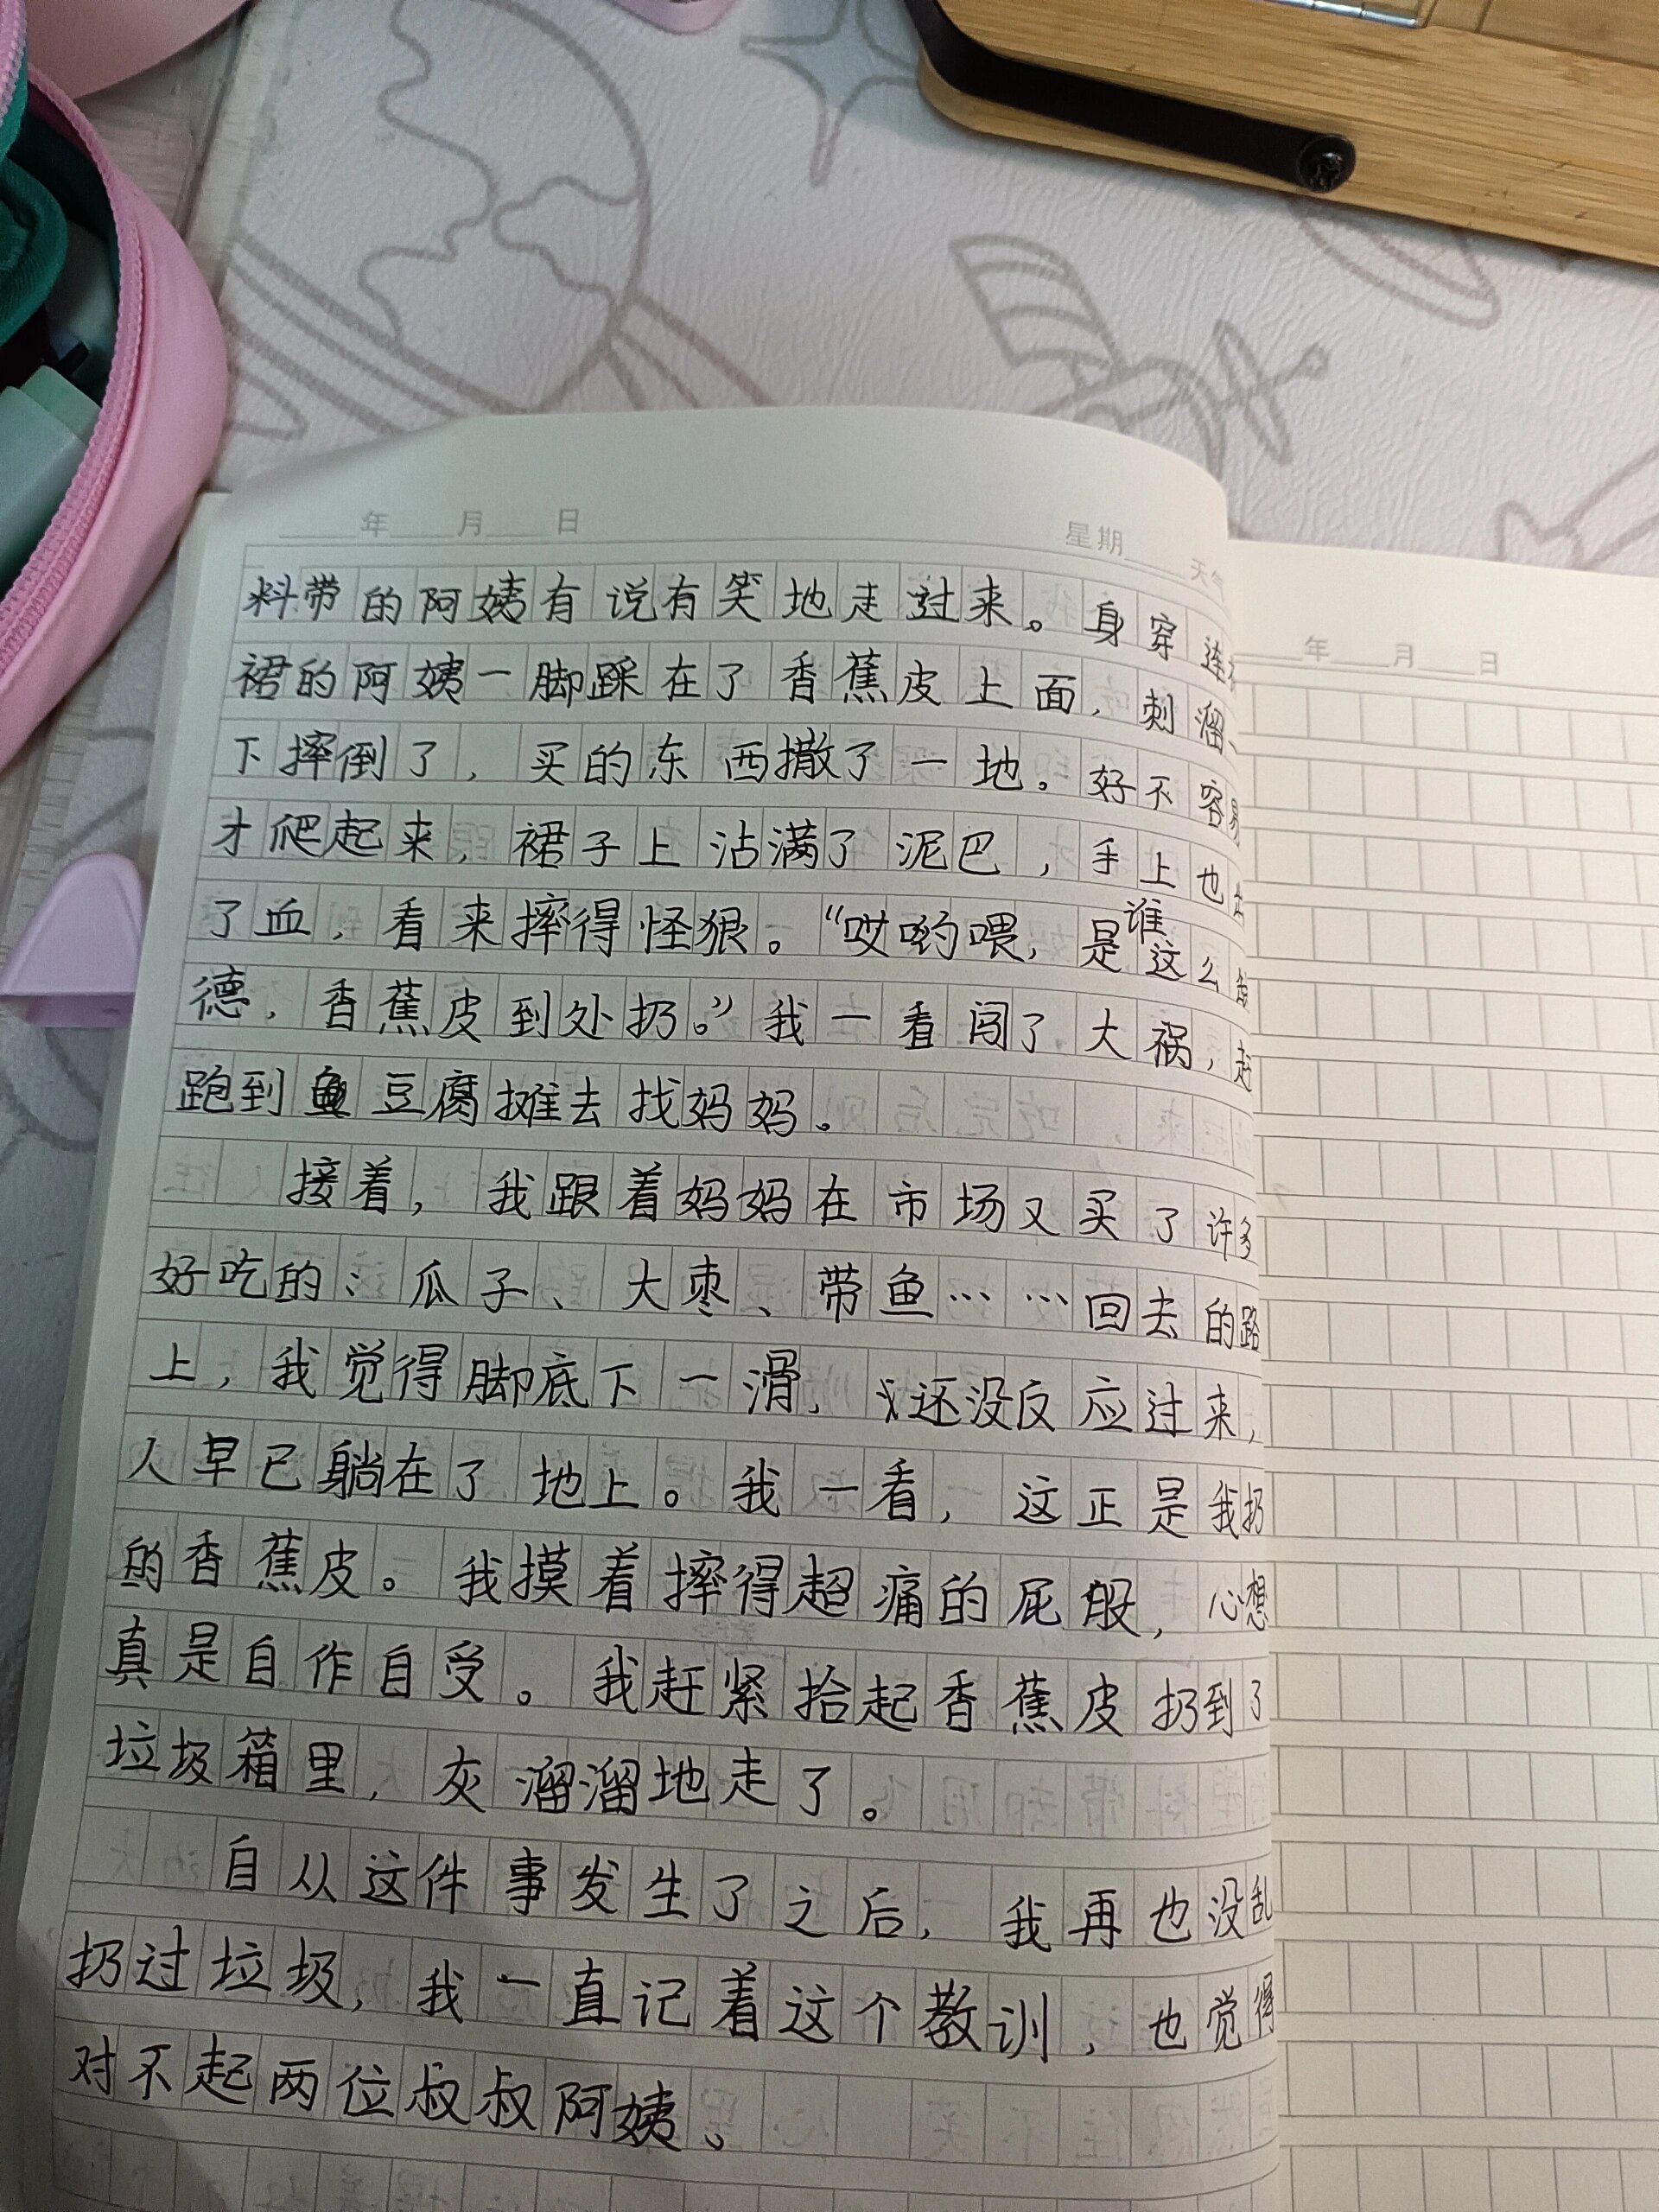 年 月 日 星期 天气
料带的阿姨有说有笑地走过来。身穿连
裙的阿姨一脚踩在了香蕉皮上面，刺溜
下摔倒了，买的东西撒了一地。好不容易
才爬起来，裙子上沾满了泥巴，手上也
了血，看来摔得怪狠。“哎哟喂，是谁这么
德，香蕉皮到处扔。”我一看闯了大祸，赶
跑到鱼豆腐摊去找妈妈。
接着，我跟着妈妈在市场又买了许多
好吃的：瓜子、大枣、带鱼……回去的路
上，我觉得脚底下一滑，还没反应过来，
人早已躺在了地上。我一看，这正是我扔
的香蕉皮。我摸着摔得超痛的屁股，心想
真是自作自受。我赶紧拾起香蕉皮扔到了
垃圾箱里，灰溜溜地走了。
自从这件事发生了之后，我再也没乱
扔过垃圾，我一直记着这个教训，也觉得
对不起两位叔叔阿姨。
年 月 日